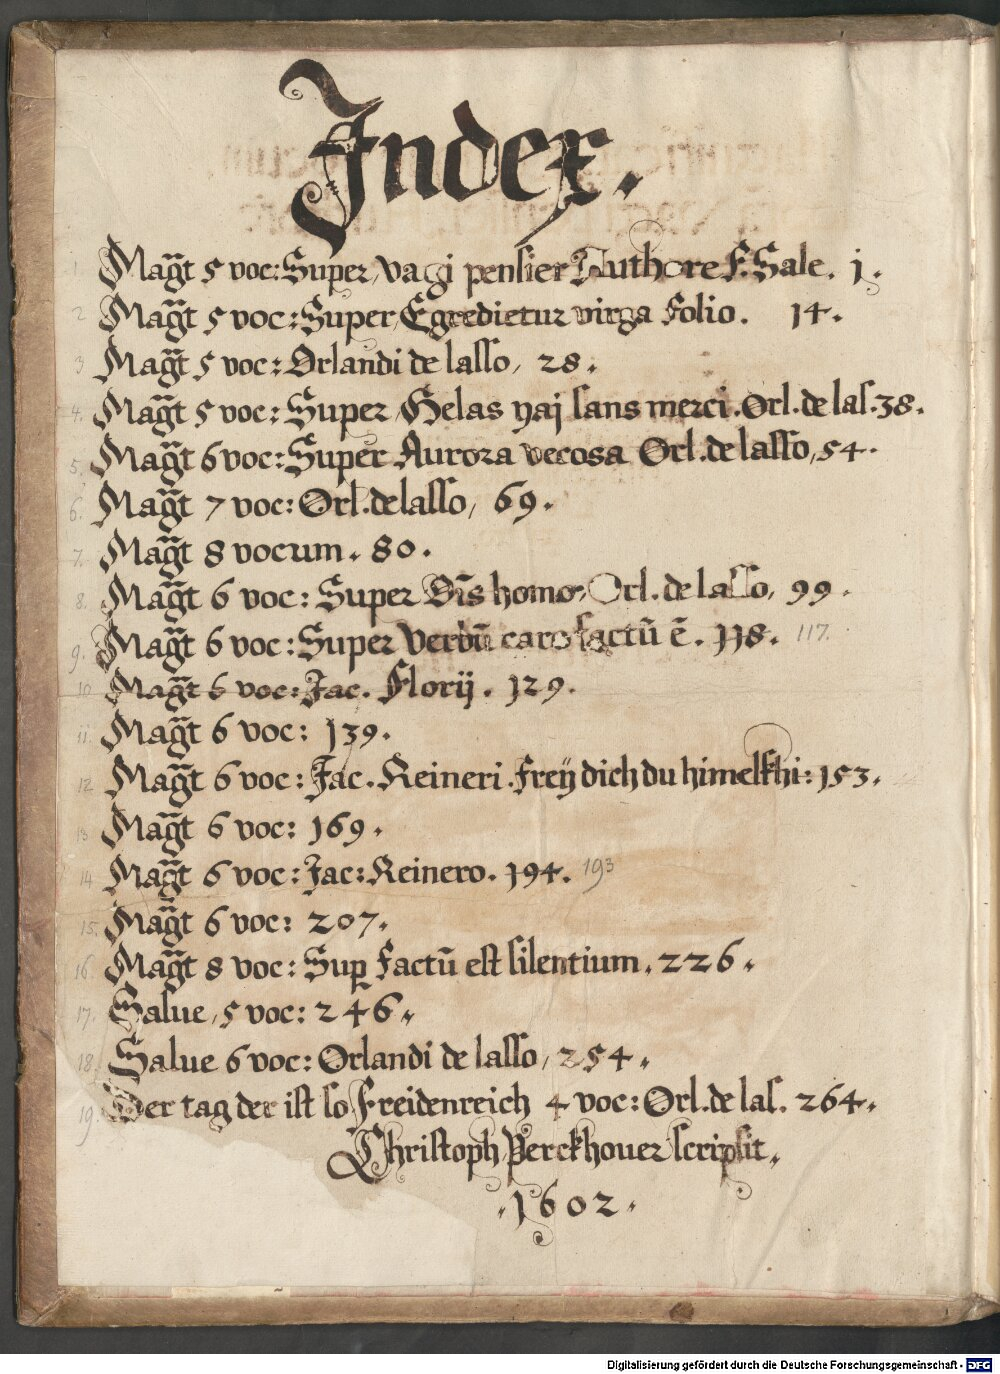 Index.
1 Mag̃t 5 voc: Super Vagi pensier Authore F. Sale. 1.
2 Mag̃t 5 voc: Super Egredietur virga Folio. 14.
3 Mag̃t 5 voc: Orlandi de lasso, 28.
4. Mag̃t 5 voc: Super Helas yaj sans merci. Orl. de las. 38.
5. Mag̃t 6 voc: Super Aurora vecosa Orl. de lasso, 54.
6. Mag̃t 7 voc: Orl. de lasso, 69.
7. Mag̃t 8 vocum. 80.
8. Mag̃t 6 voc: Super Dĩs homo, Orl. de lasso, 99.
9. Mag̃t 6 voc: Super Verbũ caro factũ ẽ. 118. 117.
10 Mag̃t 6 voc: Jac. Florij. 129.
11. Mag̃t 6 voc: 139.
12 Mag̃t 6 voc: Jac. Reineri. Freÿ dich du himelkhi: 153.
13 Mag̃t 6 voc: 169.
14 Mag̃t 6 voc: Jac: Reinero. 194. 193
15. Mag̃t 6 voc: 207.
16. Mag̃t 8 voc: Sup factũ est silentium. 226.
17. Salue, 5 voc: 246.
18. Salue 6 voc: Orlandi de lasso, 254.
19. Der tag der ist so Freidenreich 4 voc: Orl. de las. 264.
Christoph Perckhouer scripsit.
.1602.
Digitalisierung gefördert durch die Deutsche Forschungsgemeinschaft - DFG